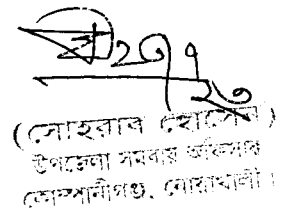 (সোহরাব হোসেন)
উপজেলা সমবায় অফিসার
কোম্পানীগঞ্জ, নোয়াখালী।